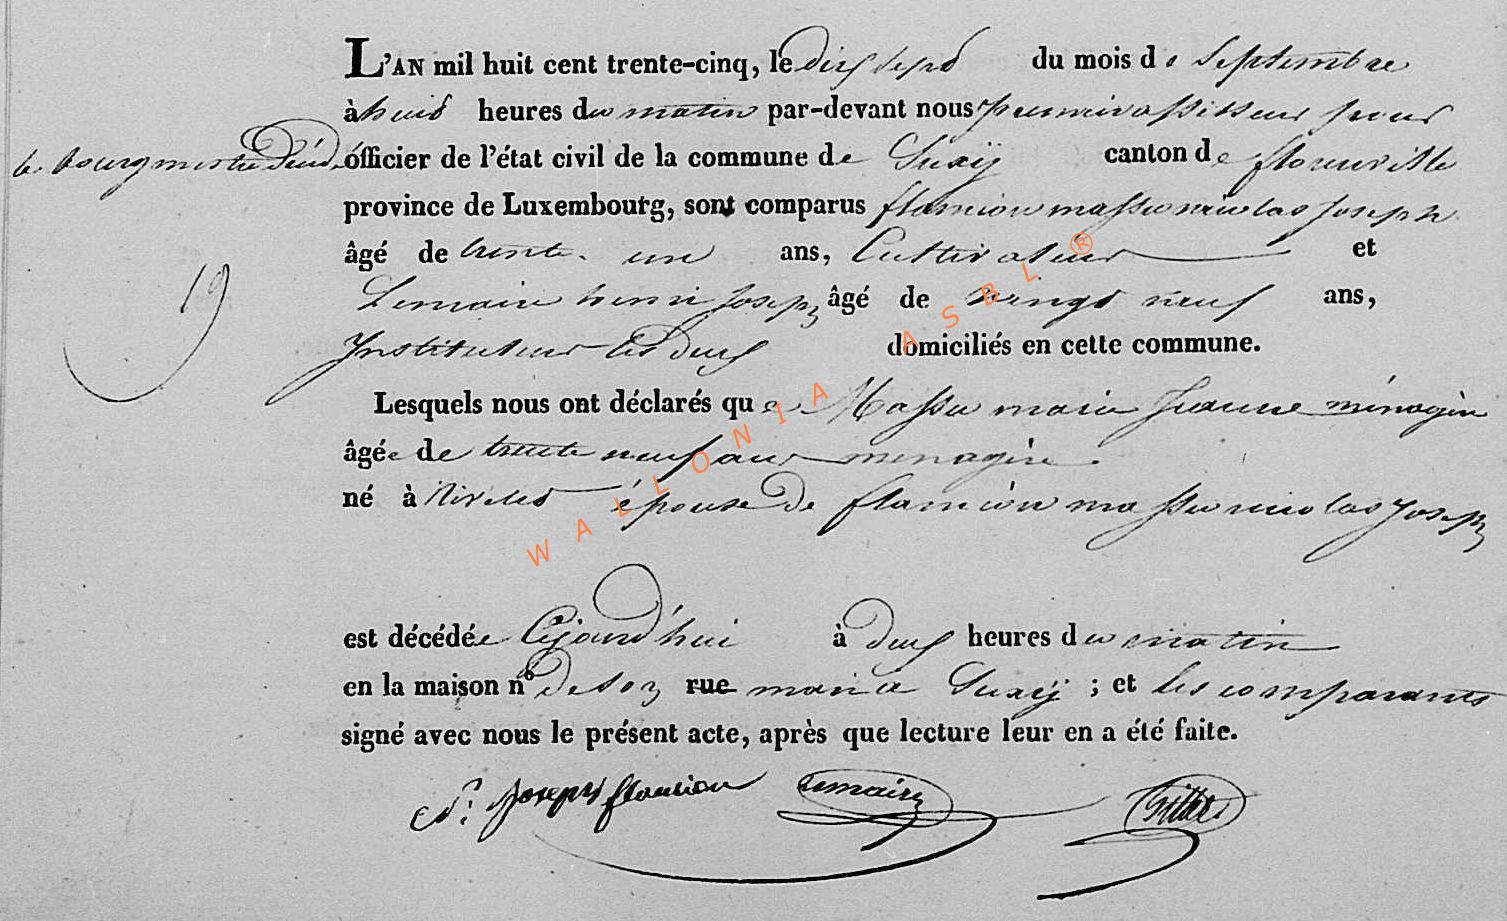 L'AN mil huit cent trente-cinq, le dix sept du mois de Septembre
à huit heures du matin par-devant nous premier assesseur pour
le bourgmestre
officier de l'état civil de la commune de Suxÿ canton de florenville
province de Luxembourg, sont comparus flamion massu nicolas joseph
âgé de trente un ans, Cultivateur et
19
Lemaire henri Joseph âgé de vingt neuf ans,
Instituteur les deux domiciliés en cette commune.
Lesquels nous ont déclarés que Massu marie Jeanne ménagère
âgée de trente neuf ans ménagère
né à épouse de flamion massu nicolas joseph
est décédée Cejourd'hui à deux heures du matin
en la maison n° de son rue mari a Suxÿ ; et les comparants
signé avec nous le présent acte, après que lecture leur en a été faite.
Joseph flamion Lemaire
WALLONIA ASBL ®